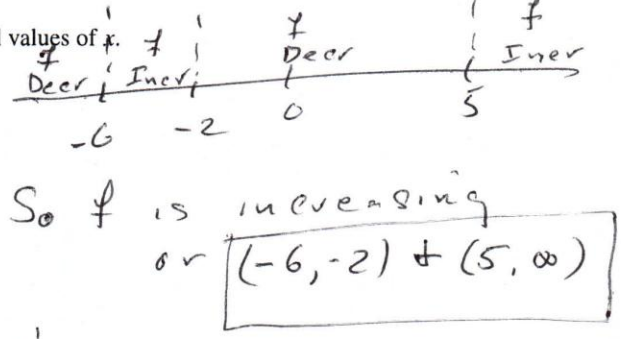 l values of x.
f Decr f Incr f Decr f Incr
-6 -2 0 5
So f is increasing
or (-6, -2) & (5, ∞)